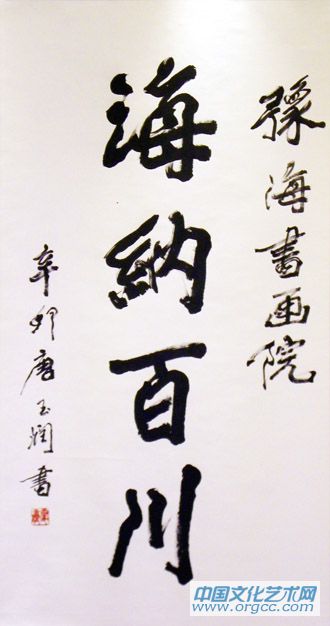 豫海書画院
海納百川
辛卯唐玉潤書
中国文化艺术网
www.orgcc.com